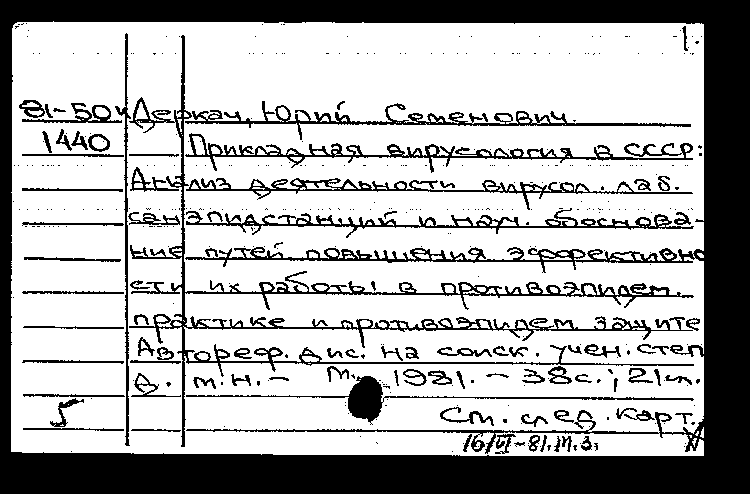 1.
81-50ч Деркач, Юрий Семенович.
1440 Прикладная вирусология в СССР:
Анализ деятельности вирусол. лаб.
санэпидстанций и науч. обоснова-
ние путей повышения эффективно
сти их работы в противоэпидем.
практике и противоэпидем. защите
Автореф. дис. на соиск. учен. степ
д. м. н. - М., 1981. - 38 с.; 21 см.
5 См. след. карт.
16/VI-81. М.З.